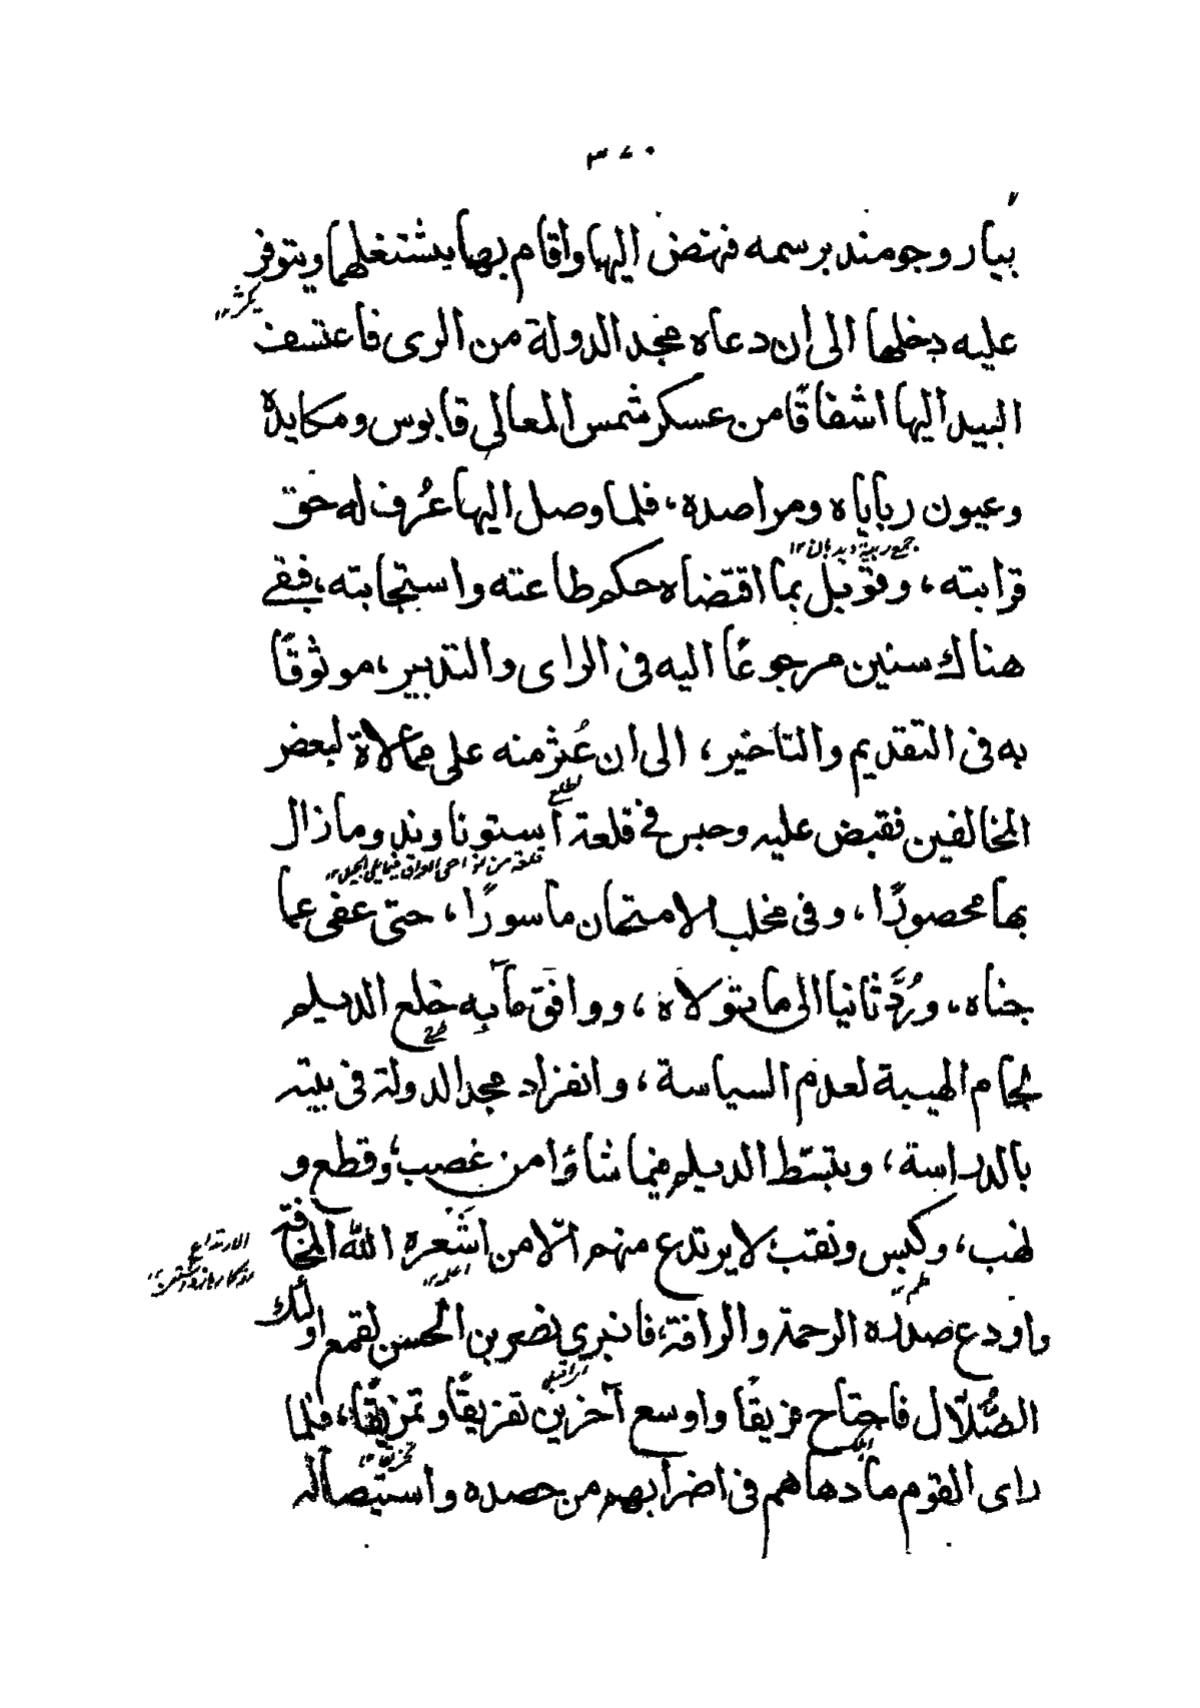 ٣٧٠
بيار وجومند برسمه فنهض اليها واقام بها يشتغلها ويتوفر
عليه دخلها الى ان دعاه مجد الدولة من الرى فاعتسف
البيد اليها اشفاقًا من عسكر شمس المعالى قابوس ومكايدة
وعيون رباياه ومراصده، فلما وصل اليها عُرف له حق
قرابته، وقوبل بما اقتضاه حكم طاعته واستجابته، فبقے
هناك سنين مرجوعًا اليه فى الراى والتدبير، موثوقًا
به فى التقديم والتاخير، الى ان عُثر منه على ممالاة لبعض
المخالفين فقبض عليه وحبس فى قلعة أستوناوند وما زال
بها محصورًا، وفى مخلب الامتحان ماسورًا، حتى عفى عما
جناه، ورُدَّ ثانيا الى ما يتولاه، ووافق مآبه خلع الديلم
لجام الهيبة لعدم السياسة، وانفراد مجد الدولة فى بيته
بالدراسة، وتبسّط الديلم فيما شاؤا من غصب، وقطع و
نهب، وكبس ونقب، لا يرتدع منهم الّا من اشعره الله المخافة
واودع صدره الرحمة والرافة، فانبرى نصر بن الحسن لقمع اولٰئك
الضُّلّال فاجتاح فريقًا واوسع آخرين تفريقًا وتمزيقًا، فلما
راى القوم ما دهاهم فى اضرابهم من حصده واستيصاله